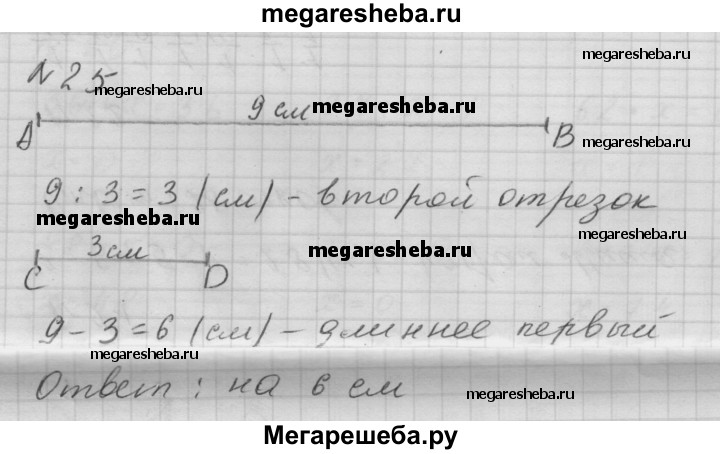 megaresheba.ru
megaresheba.ru
N 25
megaresheba.ru
9 см
megaresheba.ru
A
B
megaresheba.ru
9 : 3 = 3 (см) - второй отрезок
megaresheba.ru
megaresheba.ru
3 см
megaresheba.ru
C
D
9 - 3 = 6 (см) - длиннее первый
megaresheba.ru
megaresheba.ru
Ответ : на 6 см
megaresheba.ru
Мегарешеба.ру